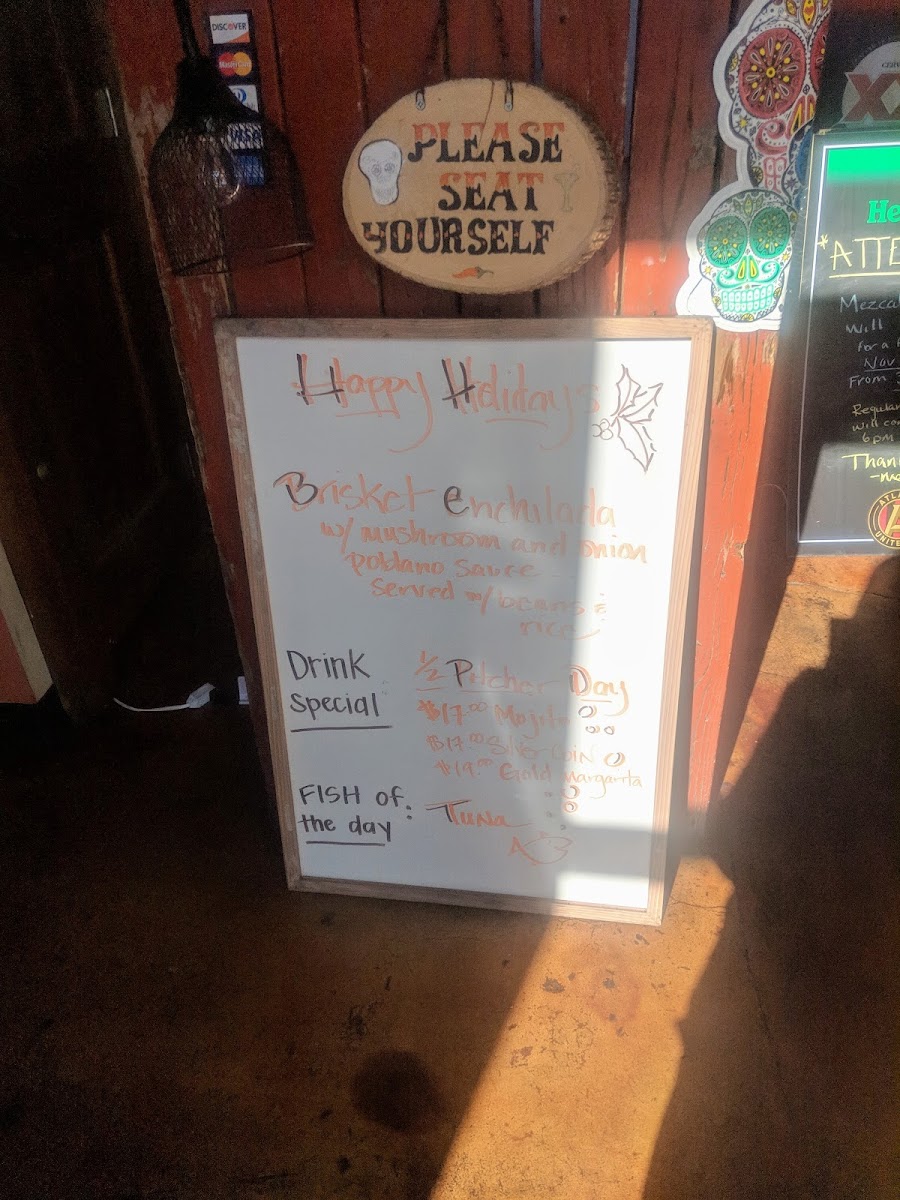 DISCOVER
MasterCard
VISA
PLEASE
SEAT
YOURSELF
Happy Holidays
Brisket Enchilada
w/ mushroom and onion
poblano sauce
served w/ beans &
rice
Drink
Special
1/2 Pitcher Day
$17.00 Mojito
$17.00 Silver Coin
$19.00 Gold margarita
FISH of
the day:
Tuna
XX
He
*ATTE
Mezcal
Will
for a
Nov
From
Regular
will
6pm
Than
ATLA
A
UNITED